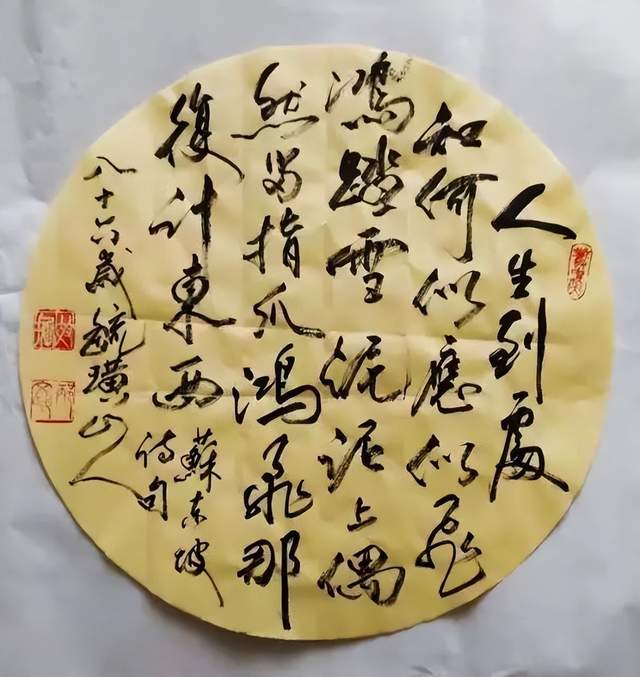 人生到處
知何似應似飛
鴻踏雪泥泥上偶
然留指爪鴻飛那
復計東西
蘇东坡
诗句
八十六歲毓璜山人